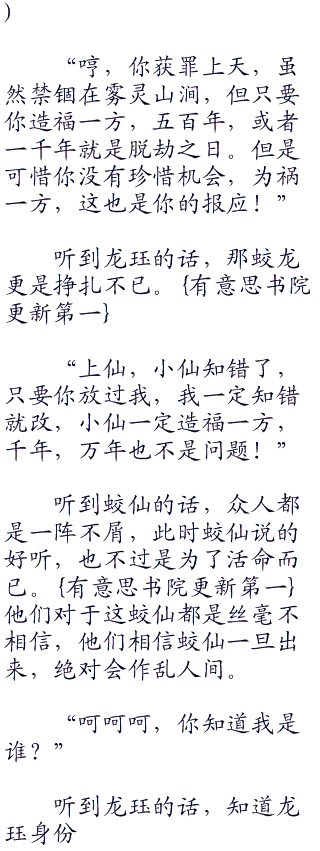 )
“哼，你获罪上天，虽
然禁锢在雾灵山涧，但只要
你造福一方，五百年，或者
一千年就是脱劫之日。但是
可惜你没有珍惜机会，为祸
一方，这也是你的报应！”
听到龙珏的话，那蛟龙
更是挣扎不已。{有意思书院
更新第一}
“上仙，小仙知错了，
只要你放过我，我一定知错
就改，小仙一定造福一方，
千年，万年也不是问题！”
听到蛟仙的话，众人都
是一阵不屑，此时蛟仙说的
好听，也不过是为了活命而
已。{有意思书院更新第一}
他们对于这蛟仙都是丝毫不
相信，他们相信蛟仙一旦出
来，绝对会作乱人间。
“呵呵呵，你知道我是
谁？”
听到龙珏的话，知道龙
珏身份